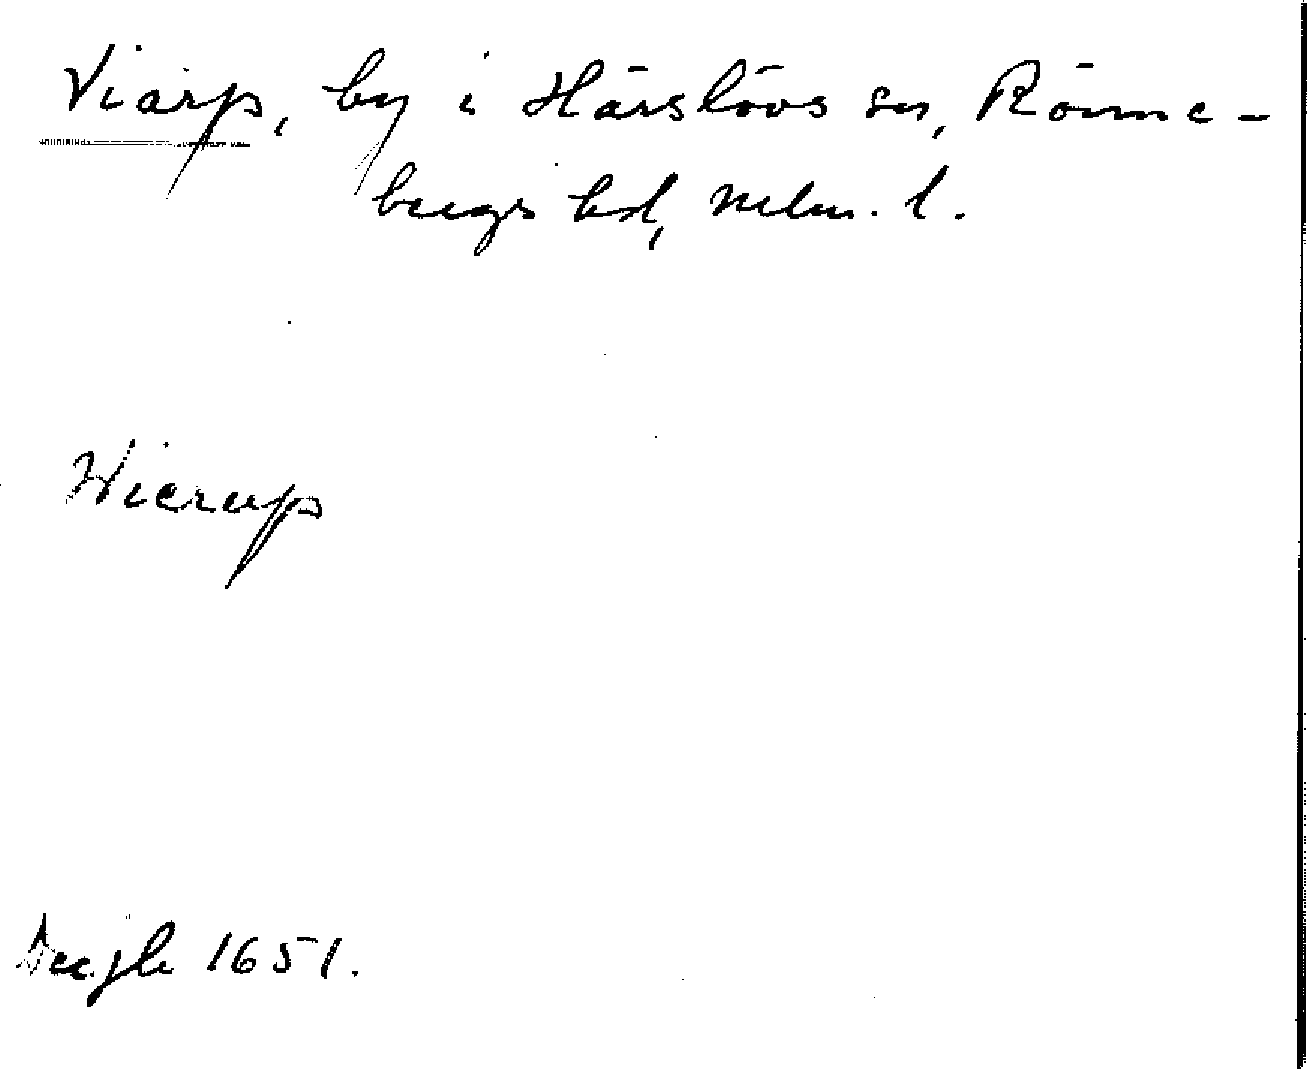 Viarp, by i Härslövs sn, Rönne-
bergs hd, Mlm. l.
Wierup
Decjb 1651.